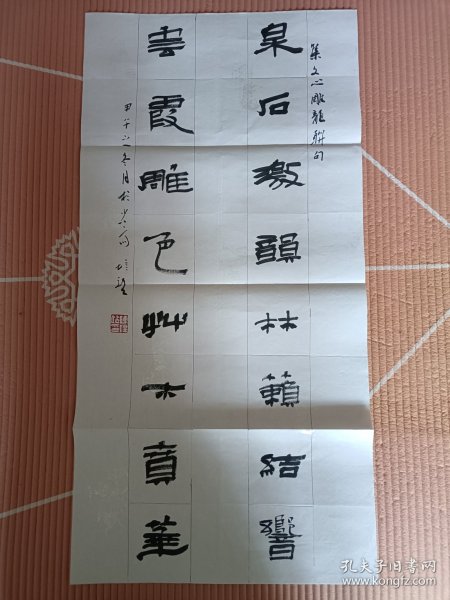 集文心雕龍聯句
泉石激韻林籟結響
雲霞雕色艸木賁華
甲午之冬月於
孔夫子旧书网
www.kongfz.com